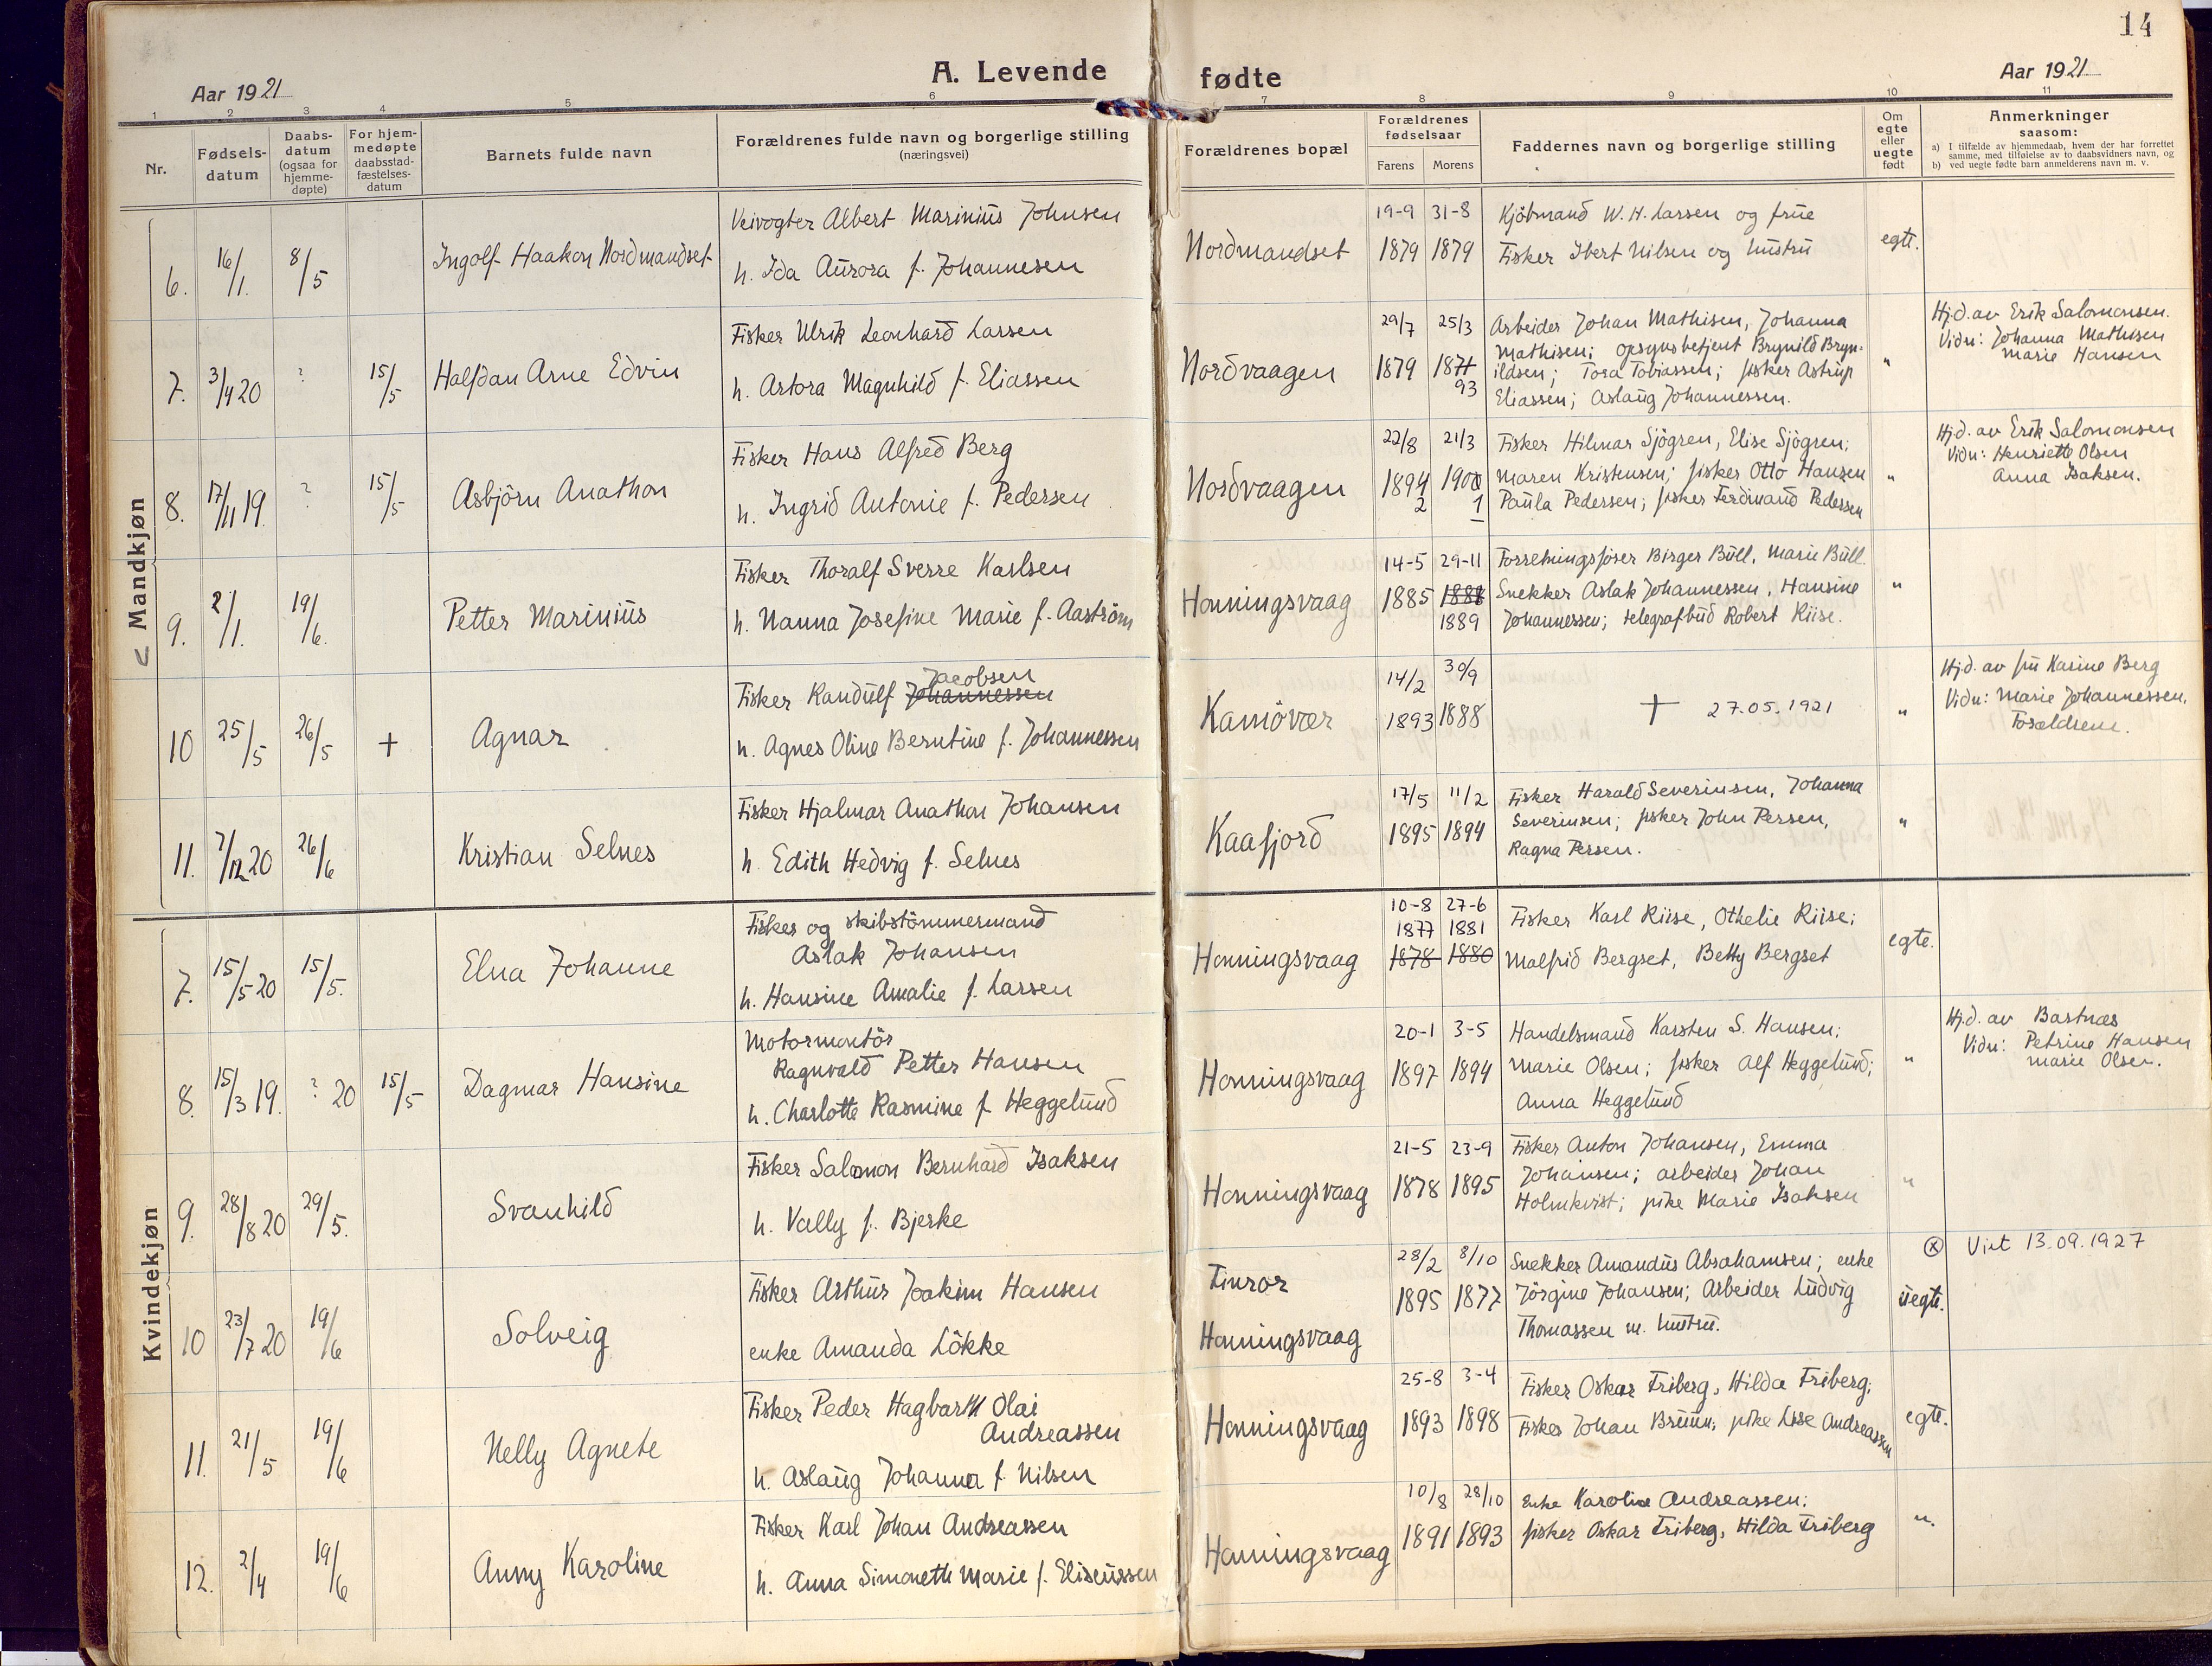 14
A. Levende fødte
Aar 1921
Aar 1921
1 2 3 4 5 6 7 8 9 10 11
Nr.
Fødsels-
datum
Daabs-
datum
(ogsaa for
hjemme-
døpte)
For hjem-
medøpte
daabsstad-
fæstelses-
datum
Barnets fulde navn
Forældrenes fulde navn og borgerlige stilling
(næringsvei)
Forældrenes bopæl
Forældrenes
fødselsaar
Farens Morens
Faddernes navn og borgerlige stilling
Om
egte
eller
uegte
født
Anmerkninger
saasom:
a) I tilfælde av hjemmedaab, hvem der har forrettet
samme, med tilføielse av to daabsvidners navn, og
b) ved uegte fødte barn anmelderens navn m. v.
Mandkjøn
6. 16/1. 8/5 Ingolf Haakon Nordmandset
Veivogter Albert Marinius Johnsen
h. Ida Aurora f. Johannesen
Nordmandset
19-9 31-8
1879 1879
Kjöbmand W. H. Larsen og frue
Fisker Ibert Nilsen og hustru
egte.
7. 3/4 20 ? 15/5 Halfdan Arne Edvin
Fisker Ulrik Leonhard Larsen
h. Astora Magnhild f. Eliassen
Nordvaagen
29/7 25/3
1879 1871
93
Arbeider Johan Mathisen, Johanna
Mathisen; opsynsbetjent Brynild Bryn-
ildsen; Tora Tobiassen; fisker Astrup
Eliassen; Aslaug Johannessen.
"
Hj.d. av Erik Salomonsen.
Vidn: Johanna Mathisen
Marie Hansen
8. 17/11 19. ? 15/5 Asbjörn Anathon
Fisker Hans Alfred Berg
h. Ingrid Antonie f. Pedersen
Nordvaagen
22/8 21/3
1894 1900
2 1
Fisker Hilmar Sjögren, Elise Sjögren;
Maren Kristensen; fisker Otto Hansen
Paula Pedersen; fisker Ferdinand Pedersen
"
Hj.d. av Erik Salomonsen
Vidn: Henriette Olsen
Anna Isaksen.
9. 2/1. 19/6. Petter Marinius
Fisker Thoralf Sverre Karlsen
h. Nanna Josefine Marie f. Aaström
Honningsvaag
14-5 29-11
1885 1888
1889
Forretningsförer Birger Bull, Marie Bull.
Snekker Aslak Johannessen, Hansine
Johannessen; telegrafbud Robert Riise.
"
10 25/5 26/5 + Agnar
Jacobsen
Fisker Randulf Johannessen
h. Agnes Oline Berntine f. Johannessen
Kamövær
14/2 30/9
1893 1888
+ 27.05.1921
"
Hj.d. av fru Karine Berg
Vidn: Marie Johannessen,
Forældrene.
11. 7/12 20 26/6 Kristian Selnes
Fisker Hjalmar Anathon Johansen
h. Edith Hedvig f. Selnes
Kaafjord
17/5 11/2
1895 1894
Fisker Harald Severinsen, Johanna
Severinsen; fisker John Persen,
Ragna Persen.
"
Kvindekjøn
7. 15/5 20 15/5. Elna Johanne
Fisker og skibstömmermand
Aslak Johansen
h. Hansine Amalie f. Larsen
Honningsvaag
10-8 27-6
1877 1881
1878 1880
Fisker Karl Riise, Othelie Riise;
Malfrid Bergset, Betty Bergset
egte.
8. 15/3 19. ? 20 15/5 Dagmar Hansine
Motormontör
Ragnvald Petter Hansen
h. Charlotte Rasmine f. Heggelund
Honningsvaag
20-1 3-5
1897 1894
Handelsmand Karsten S. Hansen;
Marie Olsen; fisker Alf Heggelund;
Anna Heggelund
"
Hj.d. av Bastnæs
Vidn: Petrine Hansen
Marie Olsen.
9. 28/8 20 29/5. Svanhild
Fisker Salomon Bernhard Isaksen
h. Vally f. Bjerke
Honningsvaag
21-5 23-9
1878 1895
Fisker Anton Johansen, Emma
Johansen; arbeider Johan
Holmkvist; pike Marie Isaksen
"
10 23/7 20 19/6 Solveig
Fisker Arthur Joakim Hansen
enke Amanda Lökke
Finror
Honningsvaag
28/2 8/10
1895 1877
Snekker Amandus Abrahamsen; enke
Jörgine Johansen; Arbeider Ludvig
Thomassen m. hustru.
uegte.
ⓧ Viet 13.09.1927
11. 21/5 19/6 Nelly Agnete
Fisker Peder Hagbarth Olai
Andreassen
h. Aslaug Johanna f. Nilsen
Honningsvaag
25-8 3-4
1893 1898
Fisker Oskar Friberg, Hilda Friberg;
Fisker Johan Bruun; pike Lise Andreassen
egte.
12. 2/4 19/6 Anny Karoline
Fisker Karl Johan Andreassen
h. Anna Simonette Marie f. Eliseussen
Honningsvaag
10/8 28/10
1891 1893
Enke Karoline Andreassen;
fisker Oskar Friberg, Hilda Friberg
"